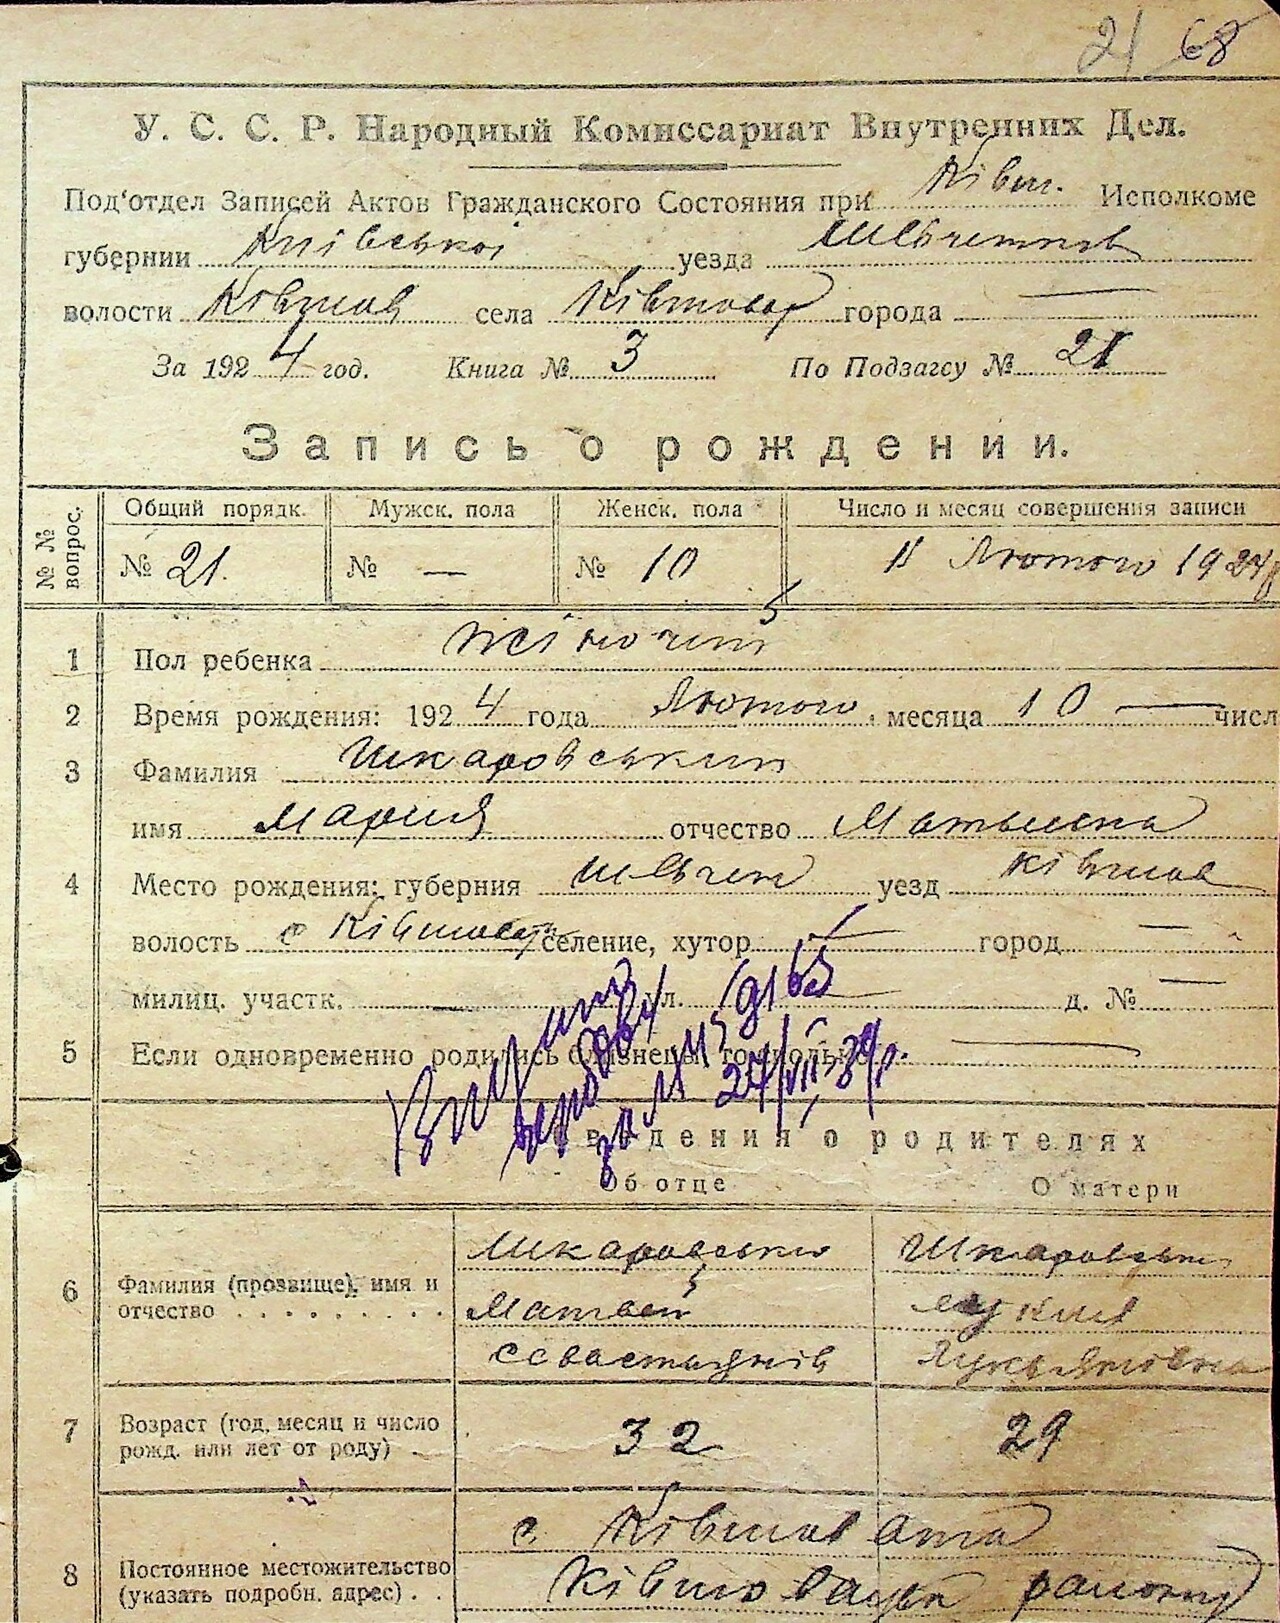 21 68
У. С. С. Р. Народный Комиссариат Внутренних Дел.
Под'отдел Записей Актов Гражданского Состояния при Ківш. Исполкоме
губернии Київської уезда Шевченков
волости Ківшов села Ківшовата города —
За 1924 год. Книга № 3 По Подзагсу № 21
Запись о рождении.
№ № вопрос. Общий порядк. Мужск. пола Женск. пола Число и месяц совершения записи
№ 21. № — № 10 11 Лютого 1924р
1 Пол ребенка жіночий
2 Время рождения: 1924 года Лютого месяца 10 — числ
3 Фамилия Шкаровський
имя Мария отчество
4 Место рождения: губерния Шевчен уезд Ківшов
волость с Ківшоват селение, хутор — город —
милиц. участк. — ул. — д. № —
5 Если одновременно родились близнецы, то сколько —
Видано
за № 9165
27/VII-39р.
Сведения о родителях
Об отце О матери
6 Фамилия (прозвище), имя и отчество . . . . . . . . .
Шкаровський Шкаровська
Матвей
Севастьянів Лукьяновна
7 Возраст (год, месяц и число рожд. или лет от роду) . 32 29
8 Постоянное местожительство (указать подробн. адрес) . .
с Ківшовата
Ківшоватськ району